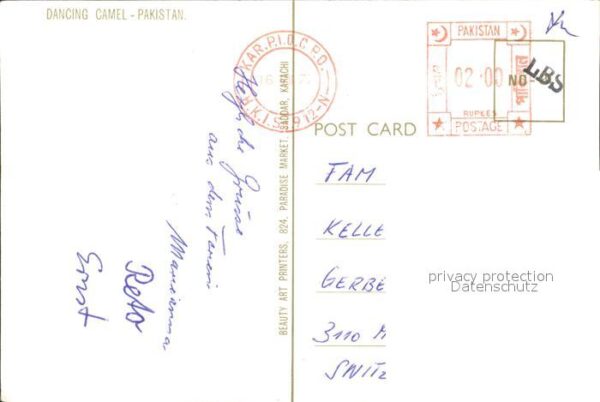 DANCING CAMEL - PAKISTAN.
KAR.P.I.D.C P.O.
PAKISTAN
02 00
RUPEES
POSTAGE
NO
LBS
POST CARD
BEAUTY ART PRINTERS, 824, PARADISE MARKET, SADDAR, KARACHI
Herzliche Grüsse
aus dem Ferien
Marianna
Reto
Ernst
FAM
KELLE
GERBE
3110 M
SWITZ
privacy protection
Datenschutz